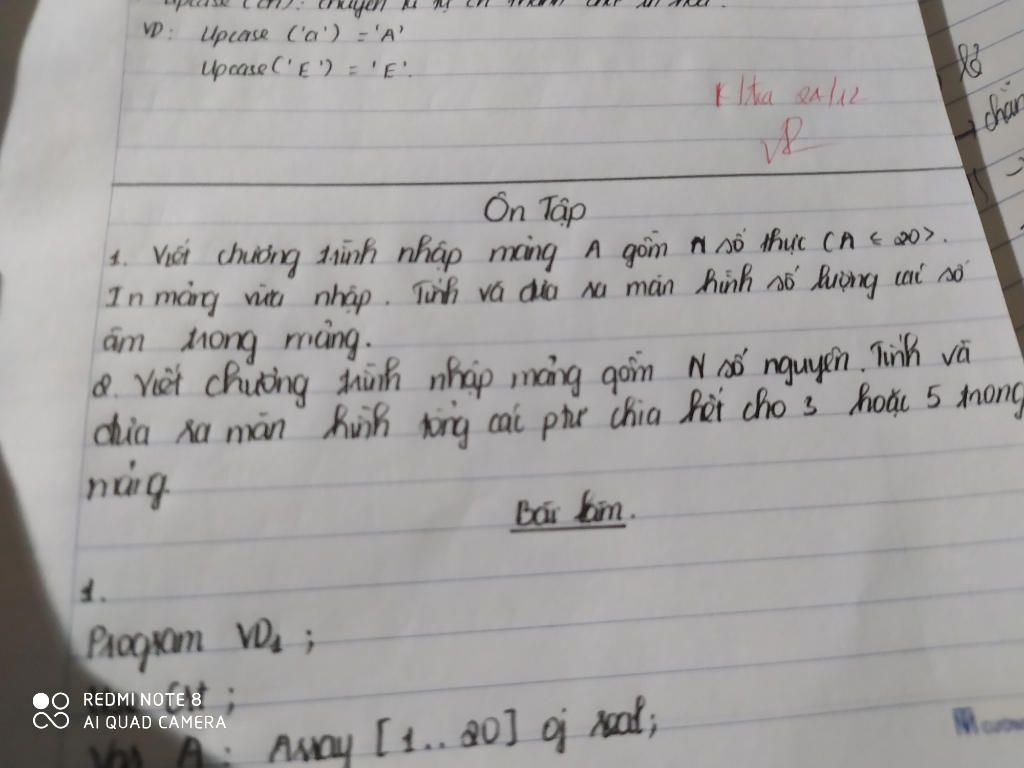 Upcase (ch): chuyển kí tự ch thành chữ in hoa.
VD: Upcase ('a') = 'A'
Upcase('E') = 'E'.
K/tra 21/12
Ôn Tập
1. Viết chương trình nhập mảng A gồm N số thực (A < 20>.
In mảng vừa nhập. Tính và đưa ra màn hình số lượng các số
âm trong mảng.
2. Viết chương trình nhập mảng gồm N số nguyên. Tính và
đưa ra màn hình tổng các ptử chia hết cho 3 hoặc 5 trong
mảng.
Bài làm.
1.
Program VD1;
;
Var A: Array [1..20] of real;
REDMI NOTE 8
AI QUAD CAMERA